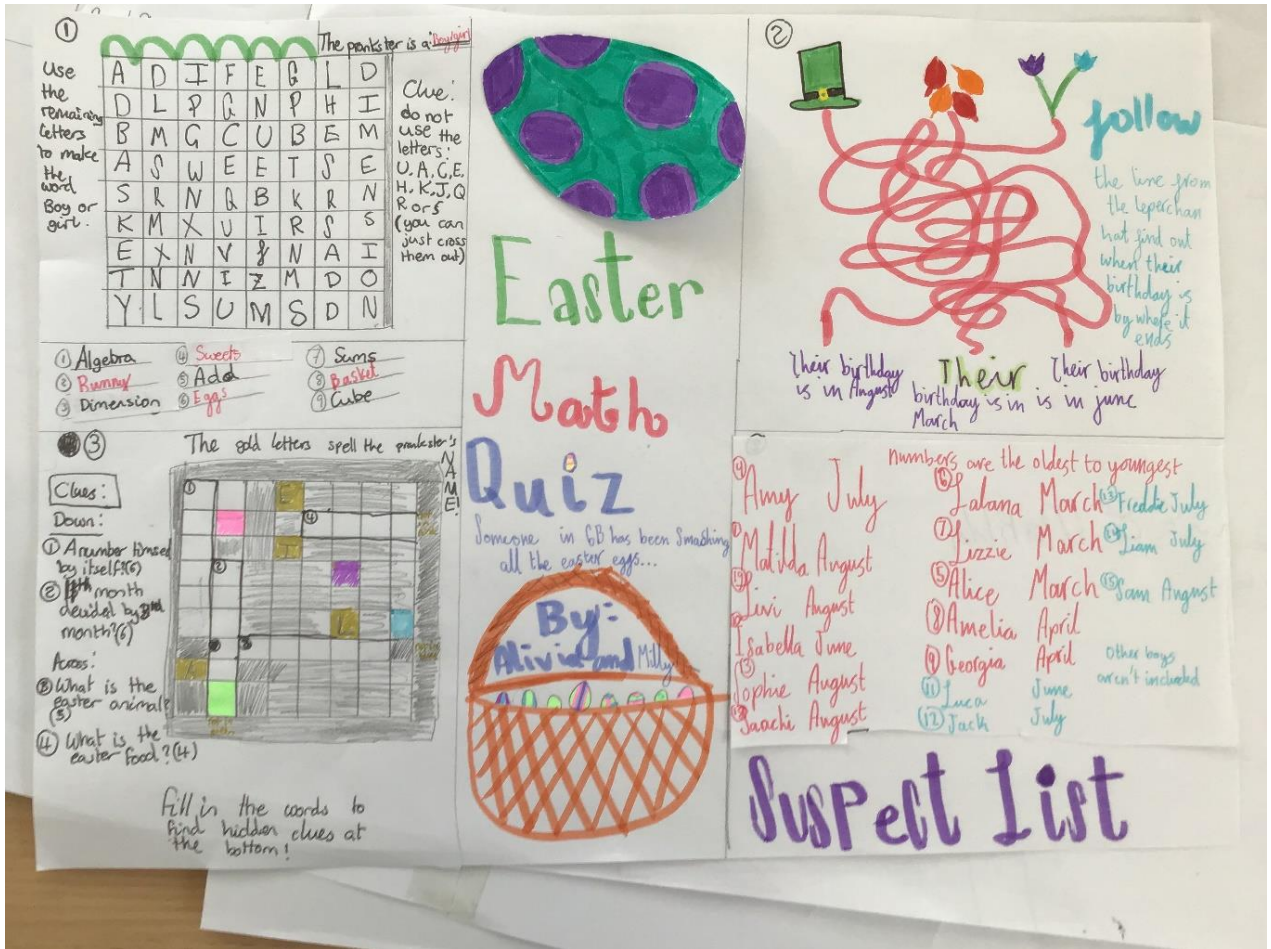 ①
The prankster is a: Boy/girl
Use
the
remaining
letters
to make
the
word
Boy or
girl.
A D I F E G L D
D L P G N P H I
B M G C U B E M
A S W E E T S E
S R N Q B K R N
K M X U I R S S
E X N V N A I
T N N I Z M D O
Y L S U M S D N
Clue:
do not
use the
letters:
U, A, C, E,
H, K, J, Q
R or S
(you can
just cross
them out)
① Algebra
② Bunny
③ Dimension
④ Sweets
⑤ Add
⑥ Eggs
⑦ Sums
⑧ Basket
⑨ Cube
③
The gold letters spell the prankster's
NAME!
Clues:
Down:
① A number timsed
by itself? (6)
② month
decided by 3rd
month? (6)
Across:
③ What is the
easter animal?
(5)
④ What is the
easter food? (4)
①
E
④
I
②
L
③
fill in the words to
find hidden clues at
the bottom!
Easter
Math
Quiz
Someone in 6B has been smashing
all the easter eggs...
By:
Alivia and Milly
②
follow
the line from
the leperchan
hat find out
when their
birthday is
by where it
ends
Their birthday
is in August
Their
birthday is in
March
Their birthday
is in june
numbers are the oldest to youngest
Amy July
Matilda August
Livi August
Isabella June
Sophie August
Saachi August
Lalana March
⑦ Lizzie March
⑤ Alice March
⑧ Amelia April
⑨ Georgia April
⑪ Luca June
⑫ Jack July
⑬ Freddie July
⑭ Liam July
⑮ Sam August
Other boys
aren't included
Suspect List